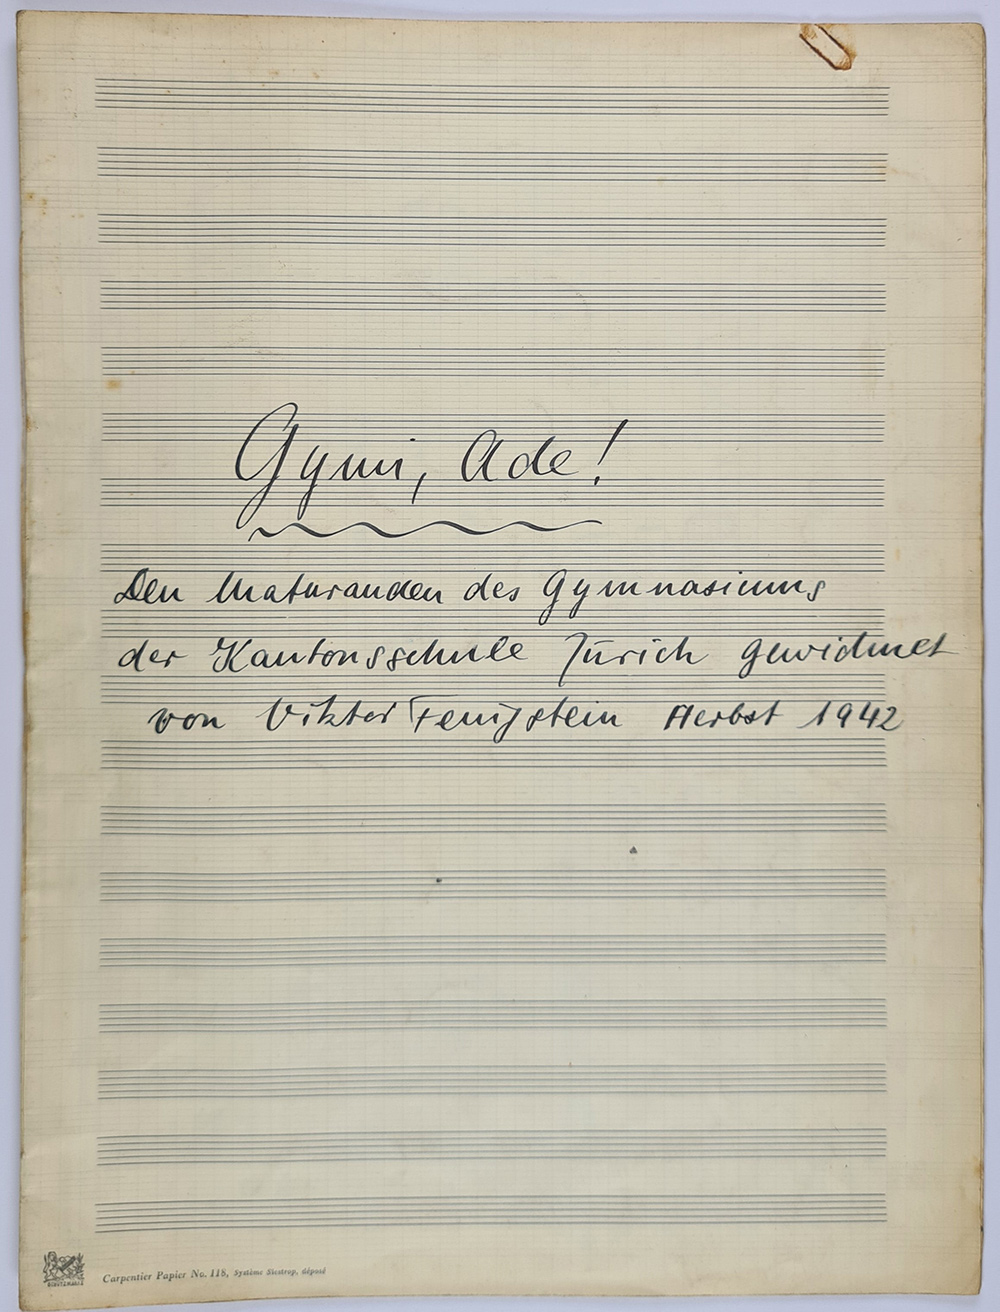 Gymi, Ade!
Den Maturanden des Gymnasiums
der Kantonsschule Zürich gewidmet
von Viktor Fenigstein Herbst 1942
Carpentier Papier No. 118, Système Siestrop, déposé